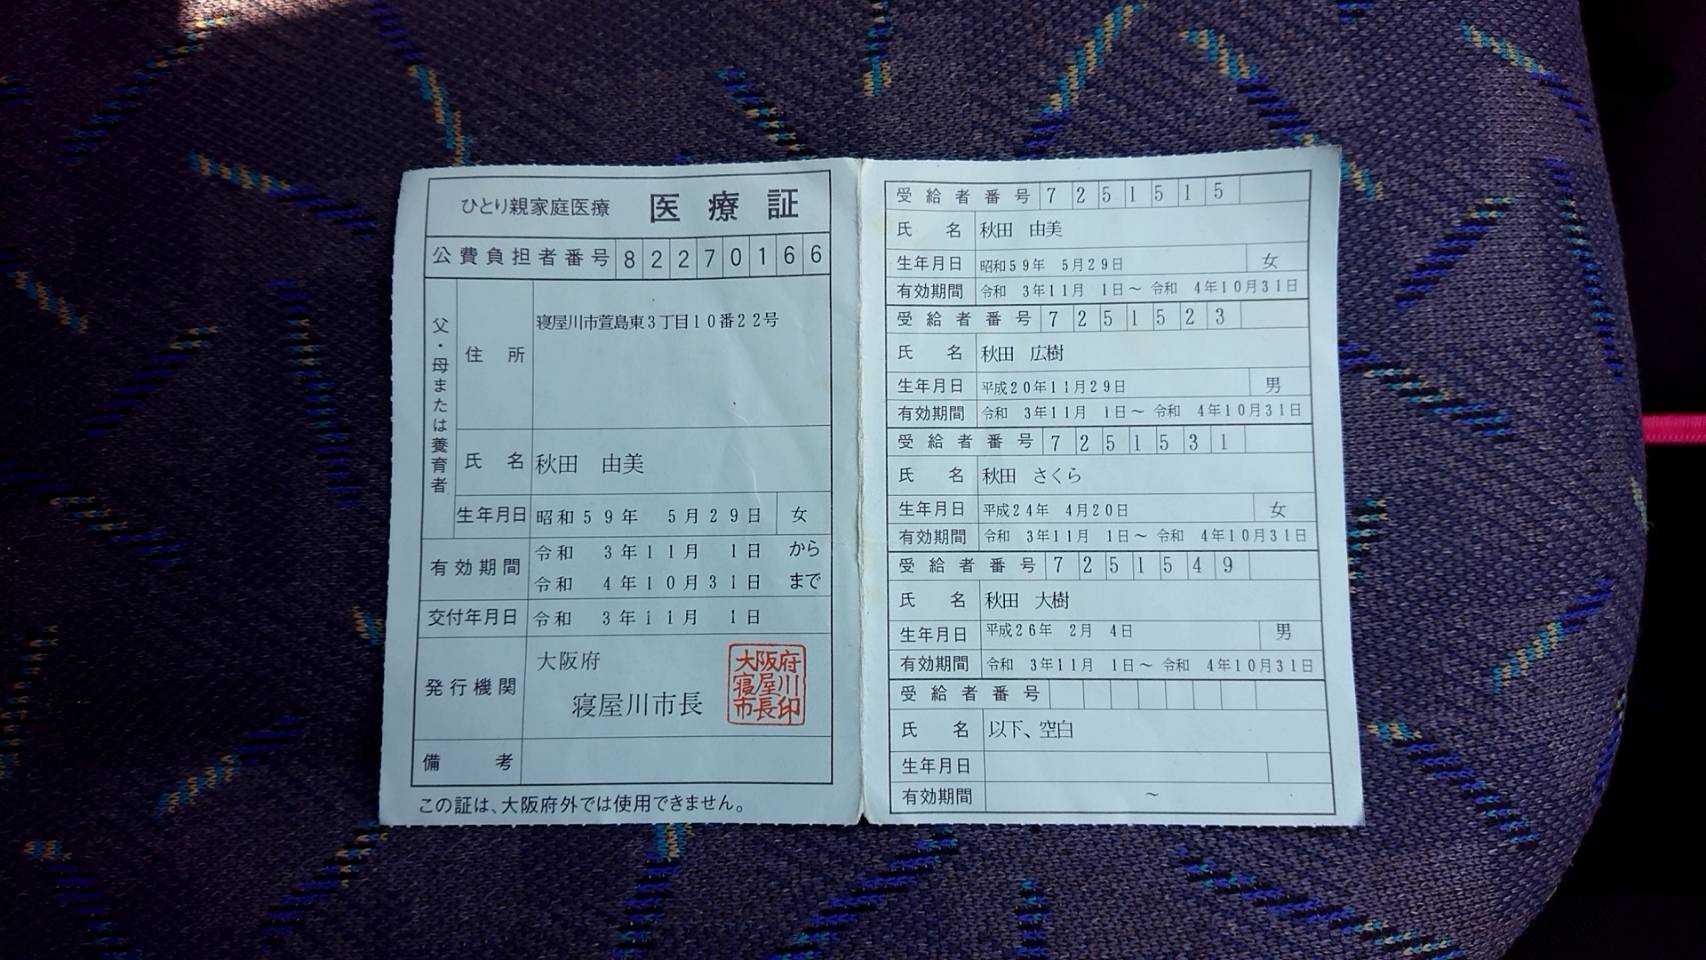 ひとり親家庭医療 医療証
公費負担者番号 82270166
父・母または養育者
住所 寝屋川市萱島東3丁目10番22号
氏名 秋田 由美
生年月日 昭和59年 5月29日 女
有効期間 令和 3年11月 1日 から
令和 4年10月31日 まで
交付年月日 令和 3年11月 1日
発行機関 大阪府
寝屋川市長
大阪府
寝屋川
市長印
備考
この証は、大阪府外では使用できません。
受給者番号 7251515
氏名 秋田 由美
生年月日 昭和59年 5月29日 女
有効期間 令和 3年11月 1日～令和 4年10月31日
受給者番号 7251523
氏名 秋田 広樹
生年月日 平成20年11月29日 男
有効期間 令和 3年11月 1日～令和 4年10月31日
受給者番号 7251531
氏名 秋田 さくら
生年月日 平成24年 4月20日 女
有効期間 令和 3年11月 1日～令和 4年10月31日
受給者番号 7251549
氏名 秋田 大樹
生年月日 平成26年 2月 4日 男
有効期間 令和 3年11月 1日～令和 4年10月31日
受給者番号
氏名 以下、空白
生年月日
有効期間 ～